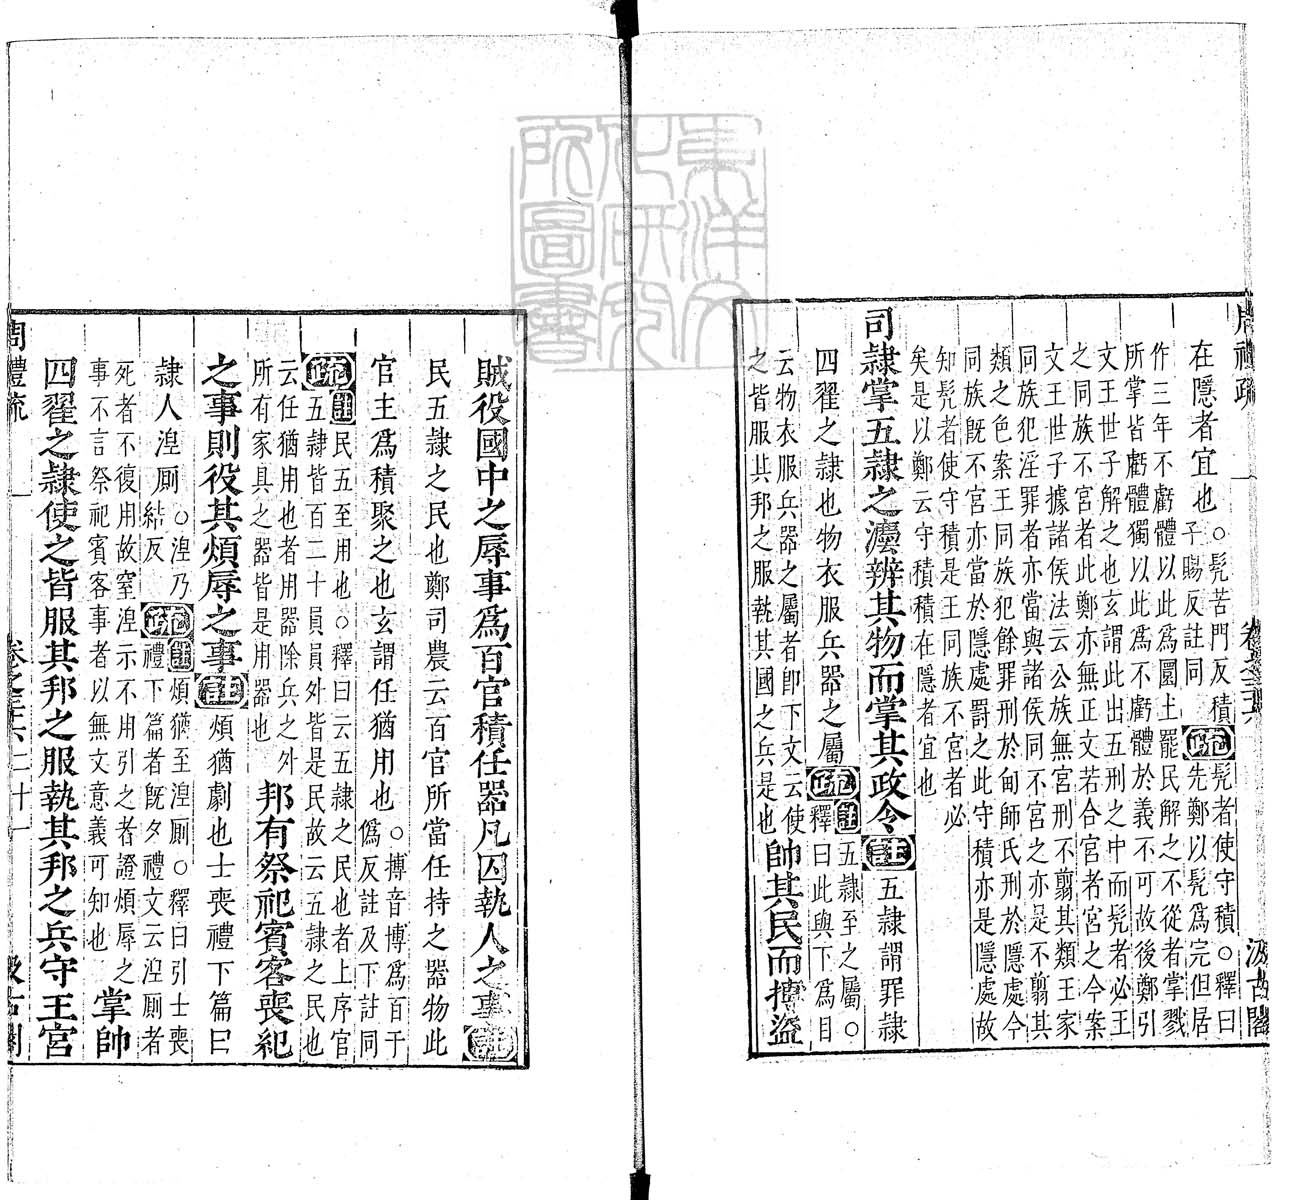 周禮疏 卷之三十六 汲古閣
在隱者宜也○髡苦門反積子賜反註同疏髡者使守積○釋曰先鄭以髡爲完但居
作三年不虧體以此爲圜土罷民解之不從者掌戮
所掌皆虧體獨以此爲不虧體於義不可故後鄭引
文王世子解之也玄謂此出五刑之中而髡者必王
之同族不宮者此鄭亦無正文若合宮者宮之今案
文王世子據諸侯法云公族無宮刑不翦其類王家
同族犯淫罪者亦當與諸侯同不宮之亦是不翦其
類之色案王同族犯餘罪刑於甸師氏刑於隱處今
同族旣不宮亦當於隱處罰之此守積亦是隱處故
知髡者使守積是王同族不宮者必
矣是以鄭云守積積在隱者宜也
司隷掌五隷之灋辨其物而掌其政令註五隷謂罪隷
四翟之隷也物衣服兵器之屬疏註五隷至之屬○釋曰此與下爲目
云物衣服兵器之屬者卽下文云使
之皆服其邦之服執其國之兵是也帥其民而搏盜
賊役國中之辱事爲百官積任器凡囚執人之事註
民五隷之民也鄭司農云百官所當任持之器物此
官主爲積聚之也玄謂任猶用也○搏音博爲百于僞反註及下註同
疏註民五至用也○釋曰云五隷之民也者上序官
五隷皆百二十員員外皆是民故云五隷之民也
云任猶用也者用器除兵之外
所有家具之器皆是用器也邦有祭祀賓客喪紀
之事則役其煩辱之事註煩猶劇也士喪禮下篇曰
隷人湼厠○湼乃結反疏註煩猶至湼厠○釋曰引士喪禮下篇者旣夕禮文云湼厠者
死者不復用故窒湼示不用引之者證煩辱之
事不言祭祀賓客事者以無文意義可知也掌帥
四翟之隷使之皆服其邦之服執其邦之兵守王宮
周禮疏 卷之三十六 二十一 汲古閣
東洋文化研究所圖書